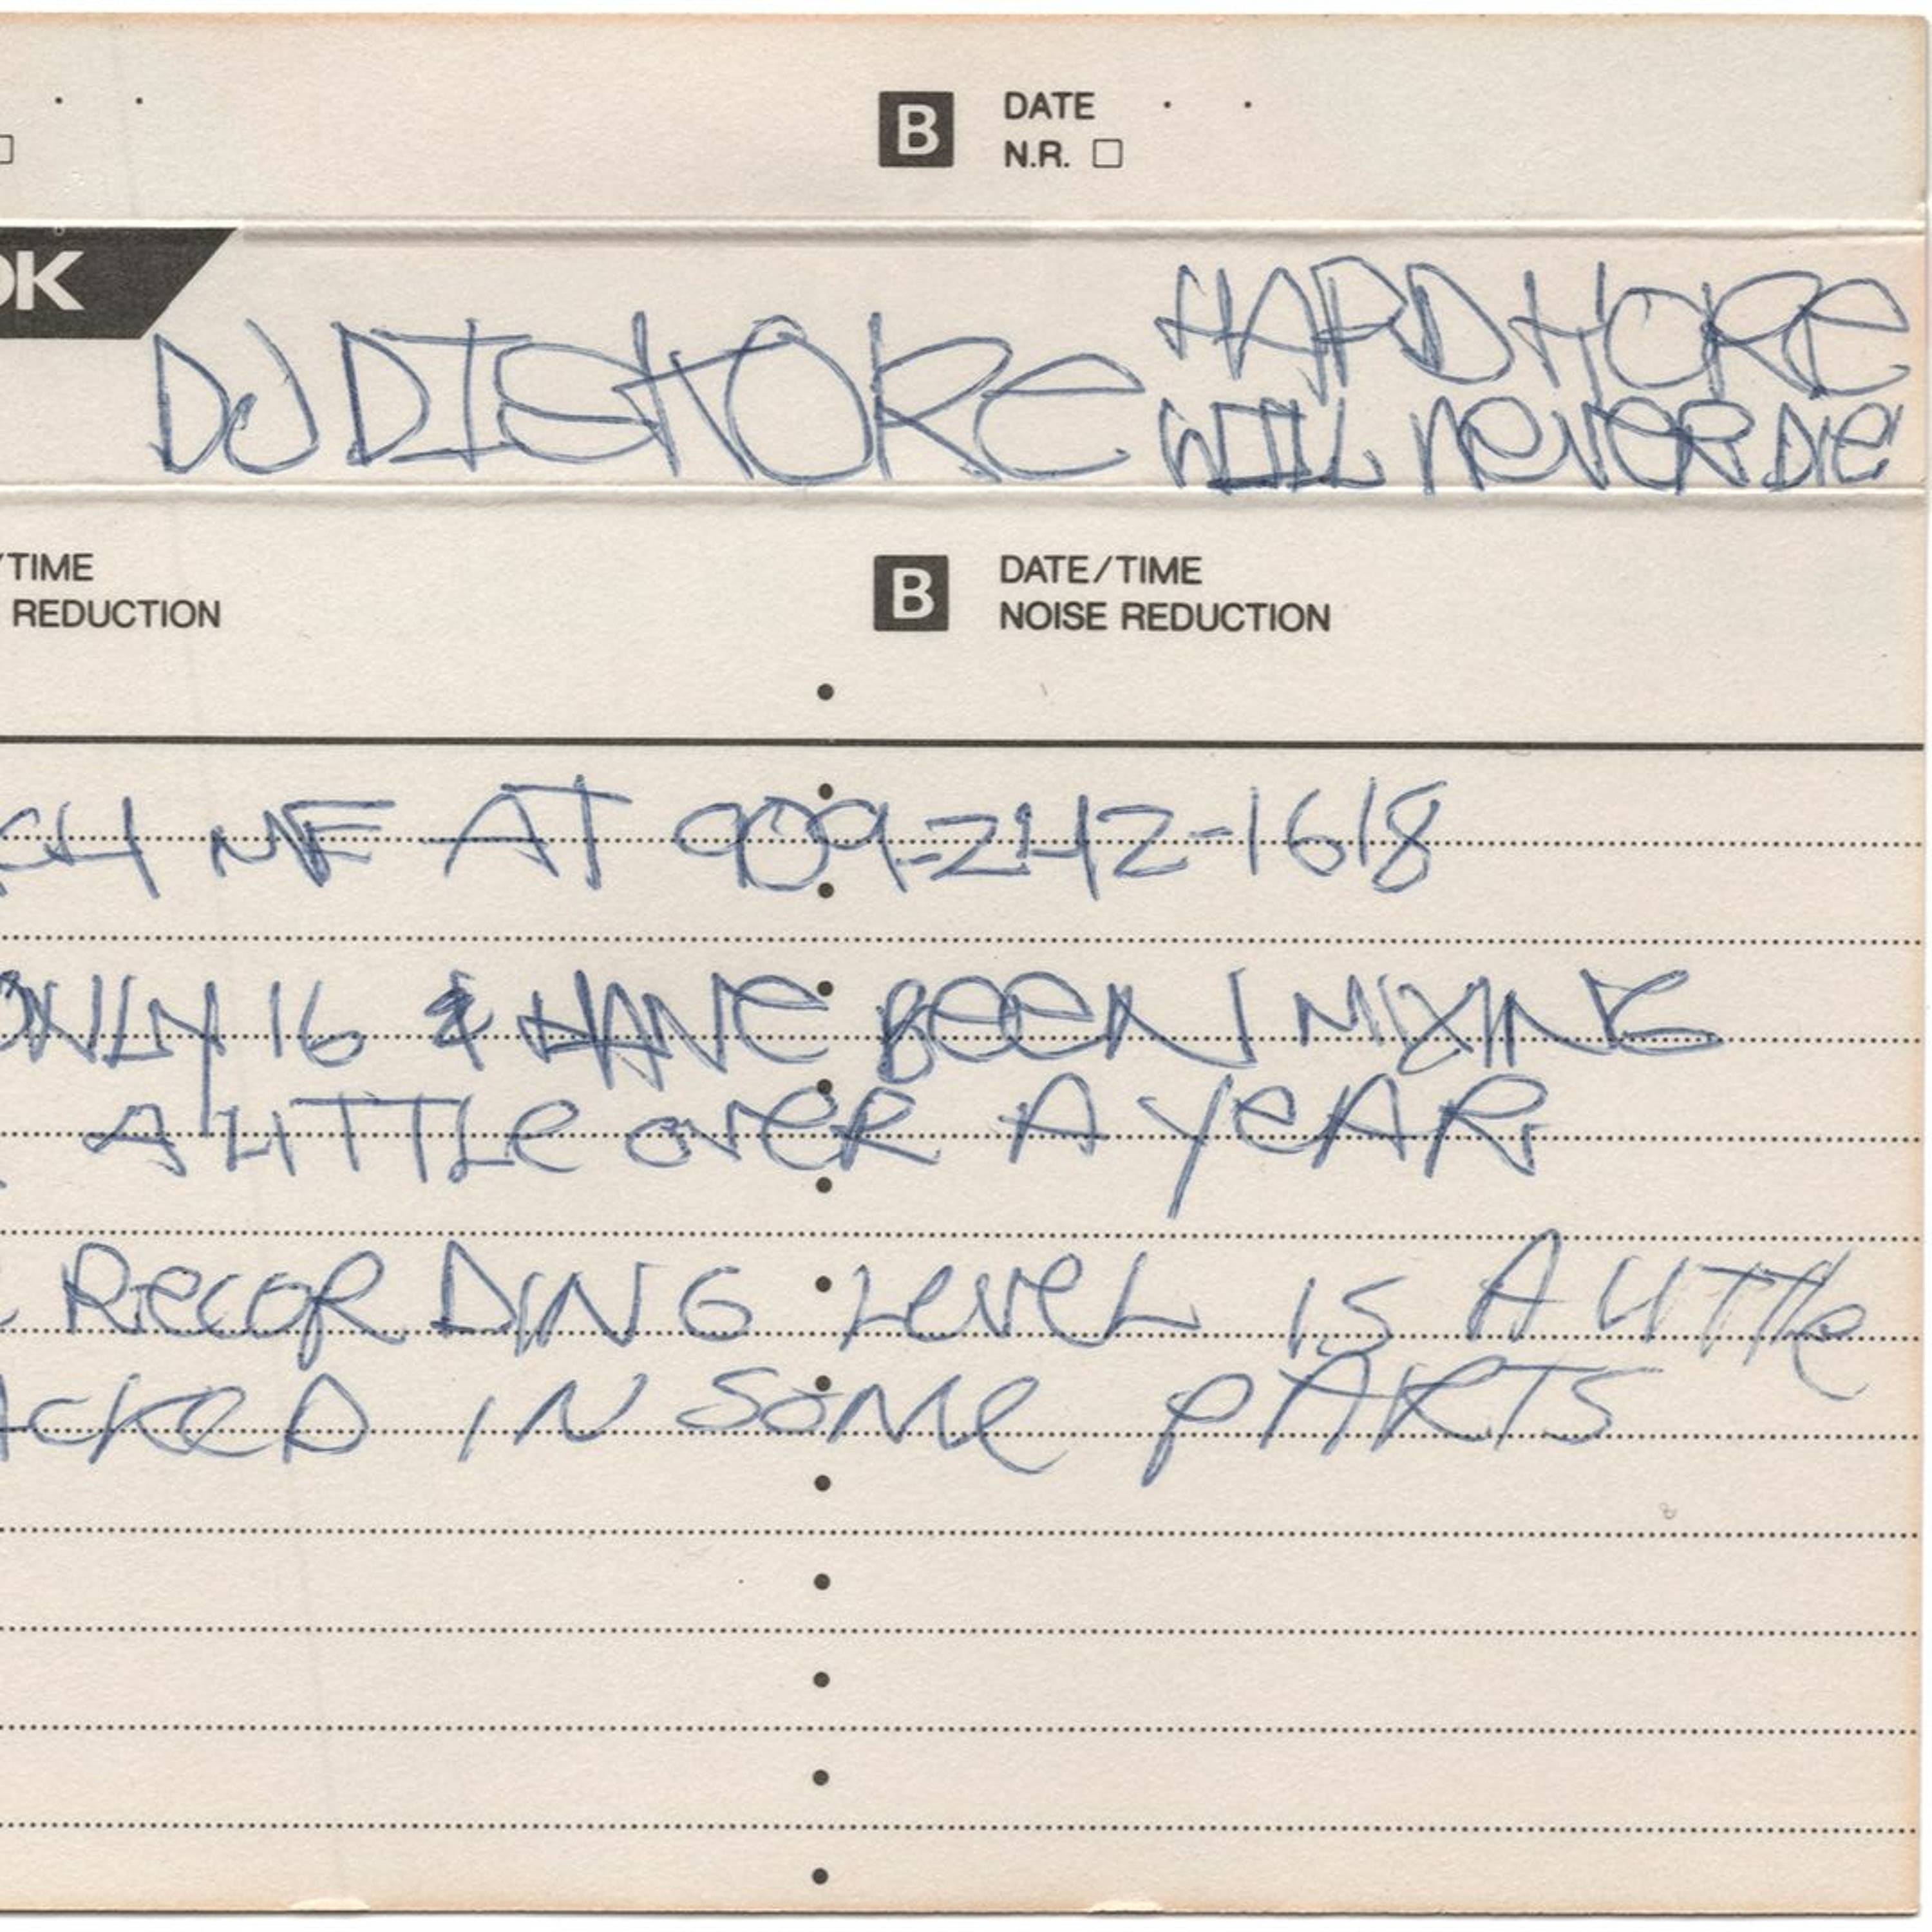 B DATE . .
N.R.
DK
DJ DISKORE
HARDKORE
WILL NEVER DIE
/TIME
REDUCTION
B DATE/TIME
NOISE REDUCTION
CH ME AT 909-242-1618
ONLY 16 & HAVE BEEN MIXING
A LITTLE OVER A YEAR
RECORDING LEVEL IS A LITTLE
ACKED IN SOME PARTS